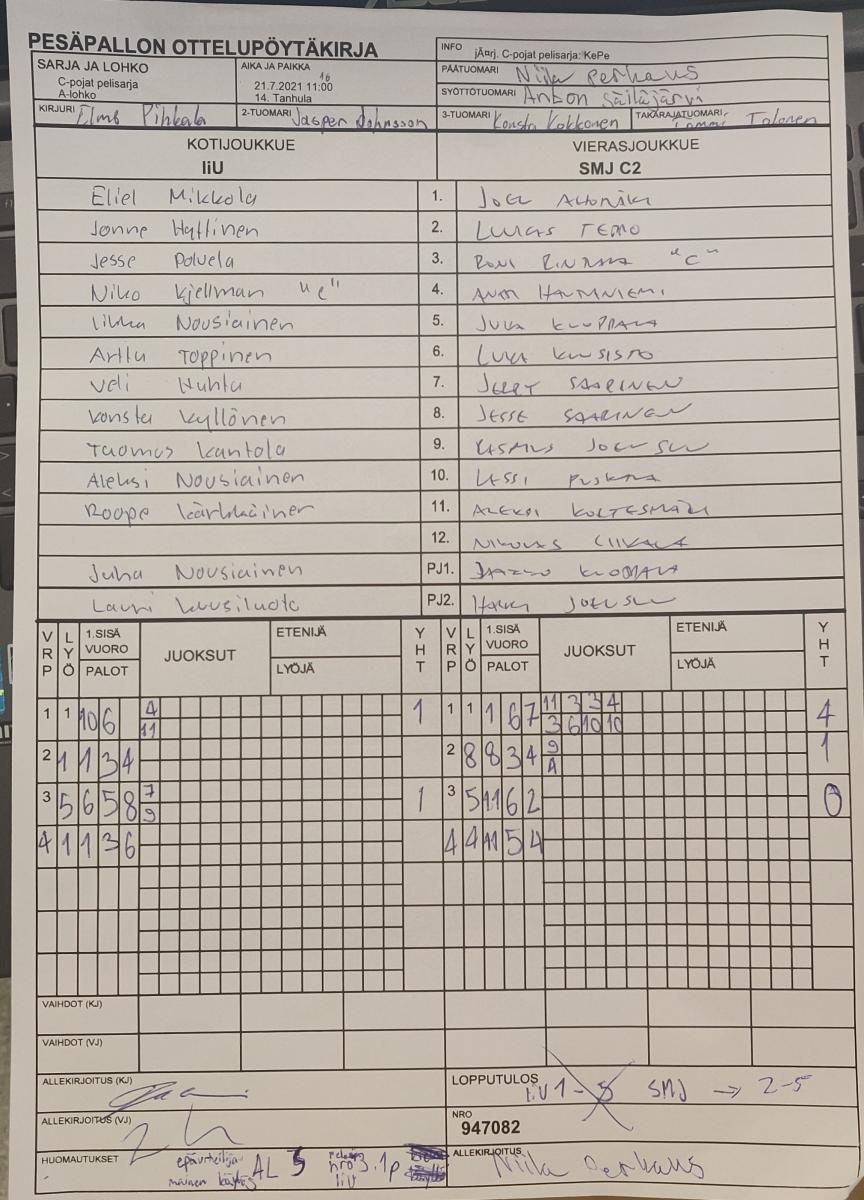 PESÄPALLON OTTELUPÖYTÄKIRJA
INFO jÃ¤rj. C-pojat pelisarja: KePe
SARJA JA LOHKO
C-pojat pelisarja
A-lohko
AIKA JA PAIKKA
16
21.7.2021 11:00
14. Tanhula
PÄÄTUOMARI Niila Perhaus
SYÖTTÖTUOMARI Anton Säiläjärvi
KIRJURI Elmo Pihkala
2-TUOMARI Jasper Johnsson
3-TUOMARI Konsta Kokkonen
TAKARAJATUOMARI Tommi Talonen
KOTIJOUKKUE VIERASJOUKKUE
IiU SMJ C2
Eliel Mikkola 1. JOEL
Jonne Hyttinen 2. LUKAS TERHO
Jesse Polvela 3. RONI "C"
Niko Kjellman "C" 4. HAUTANIEMI
Iikka Nousiainen 5.
Arttu Toppinen 6. LUKA KUUSISTO
Veli Huhta 7. JERET SAARINEN
Konsta Kyllönen 8. JESSE SAARINEN
Tuomas Kantola 9. RASMUS JOENSUU
Aleksi Nousiainen 10. LASSI
Roope Kärkkäinen 11. ALEKSI KOLTESMÄKI
12. NIKOLAS LIIKALA
Juha Nousiainen PJ1. JAAKKO
Lauri Kuusiluoto PJ2. HARRI JOENSUU
VRP LYÖ 1.SISÄ VUORO PALOT JUOKSUT ETENIJÄ LYÖJÄ YHT VRP LYÖ 1.SISÄ VUORO PALOT JUOKSUT ETENIJÄ LYÖJÄ YHT
1 1 10 6 4 1 1 1 1 6 7 11 3 3 4 4
11 3 6 10 10
2 1 1 3 4 2 8 8 3 4 9 1
A
3 5 6 5 8 7 1 3 5 11 6 2 0
9
4 1 1 3 6 4 4 11 5 4
VAIHDOT (KJ)
VAIHDOT (VJ)
ALLEKIRJOITUS (KJ)
LOPPUTULOS IiU 1 - 5 SMJ → 2-5
ALLEKIRJOITUS (VJ)
NRO
947082
HUOMAUTUKSET epäurheilijamainen käytös AL 3 pelaaja nro 3. 1p IiU
ALLEKIRJOITUS Niila Perhaus